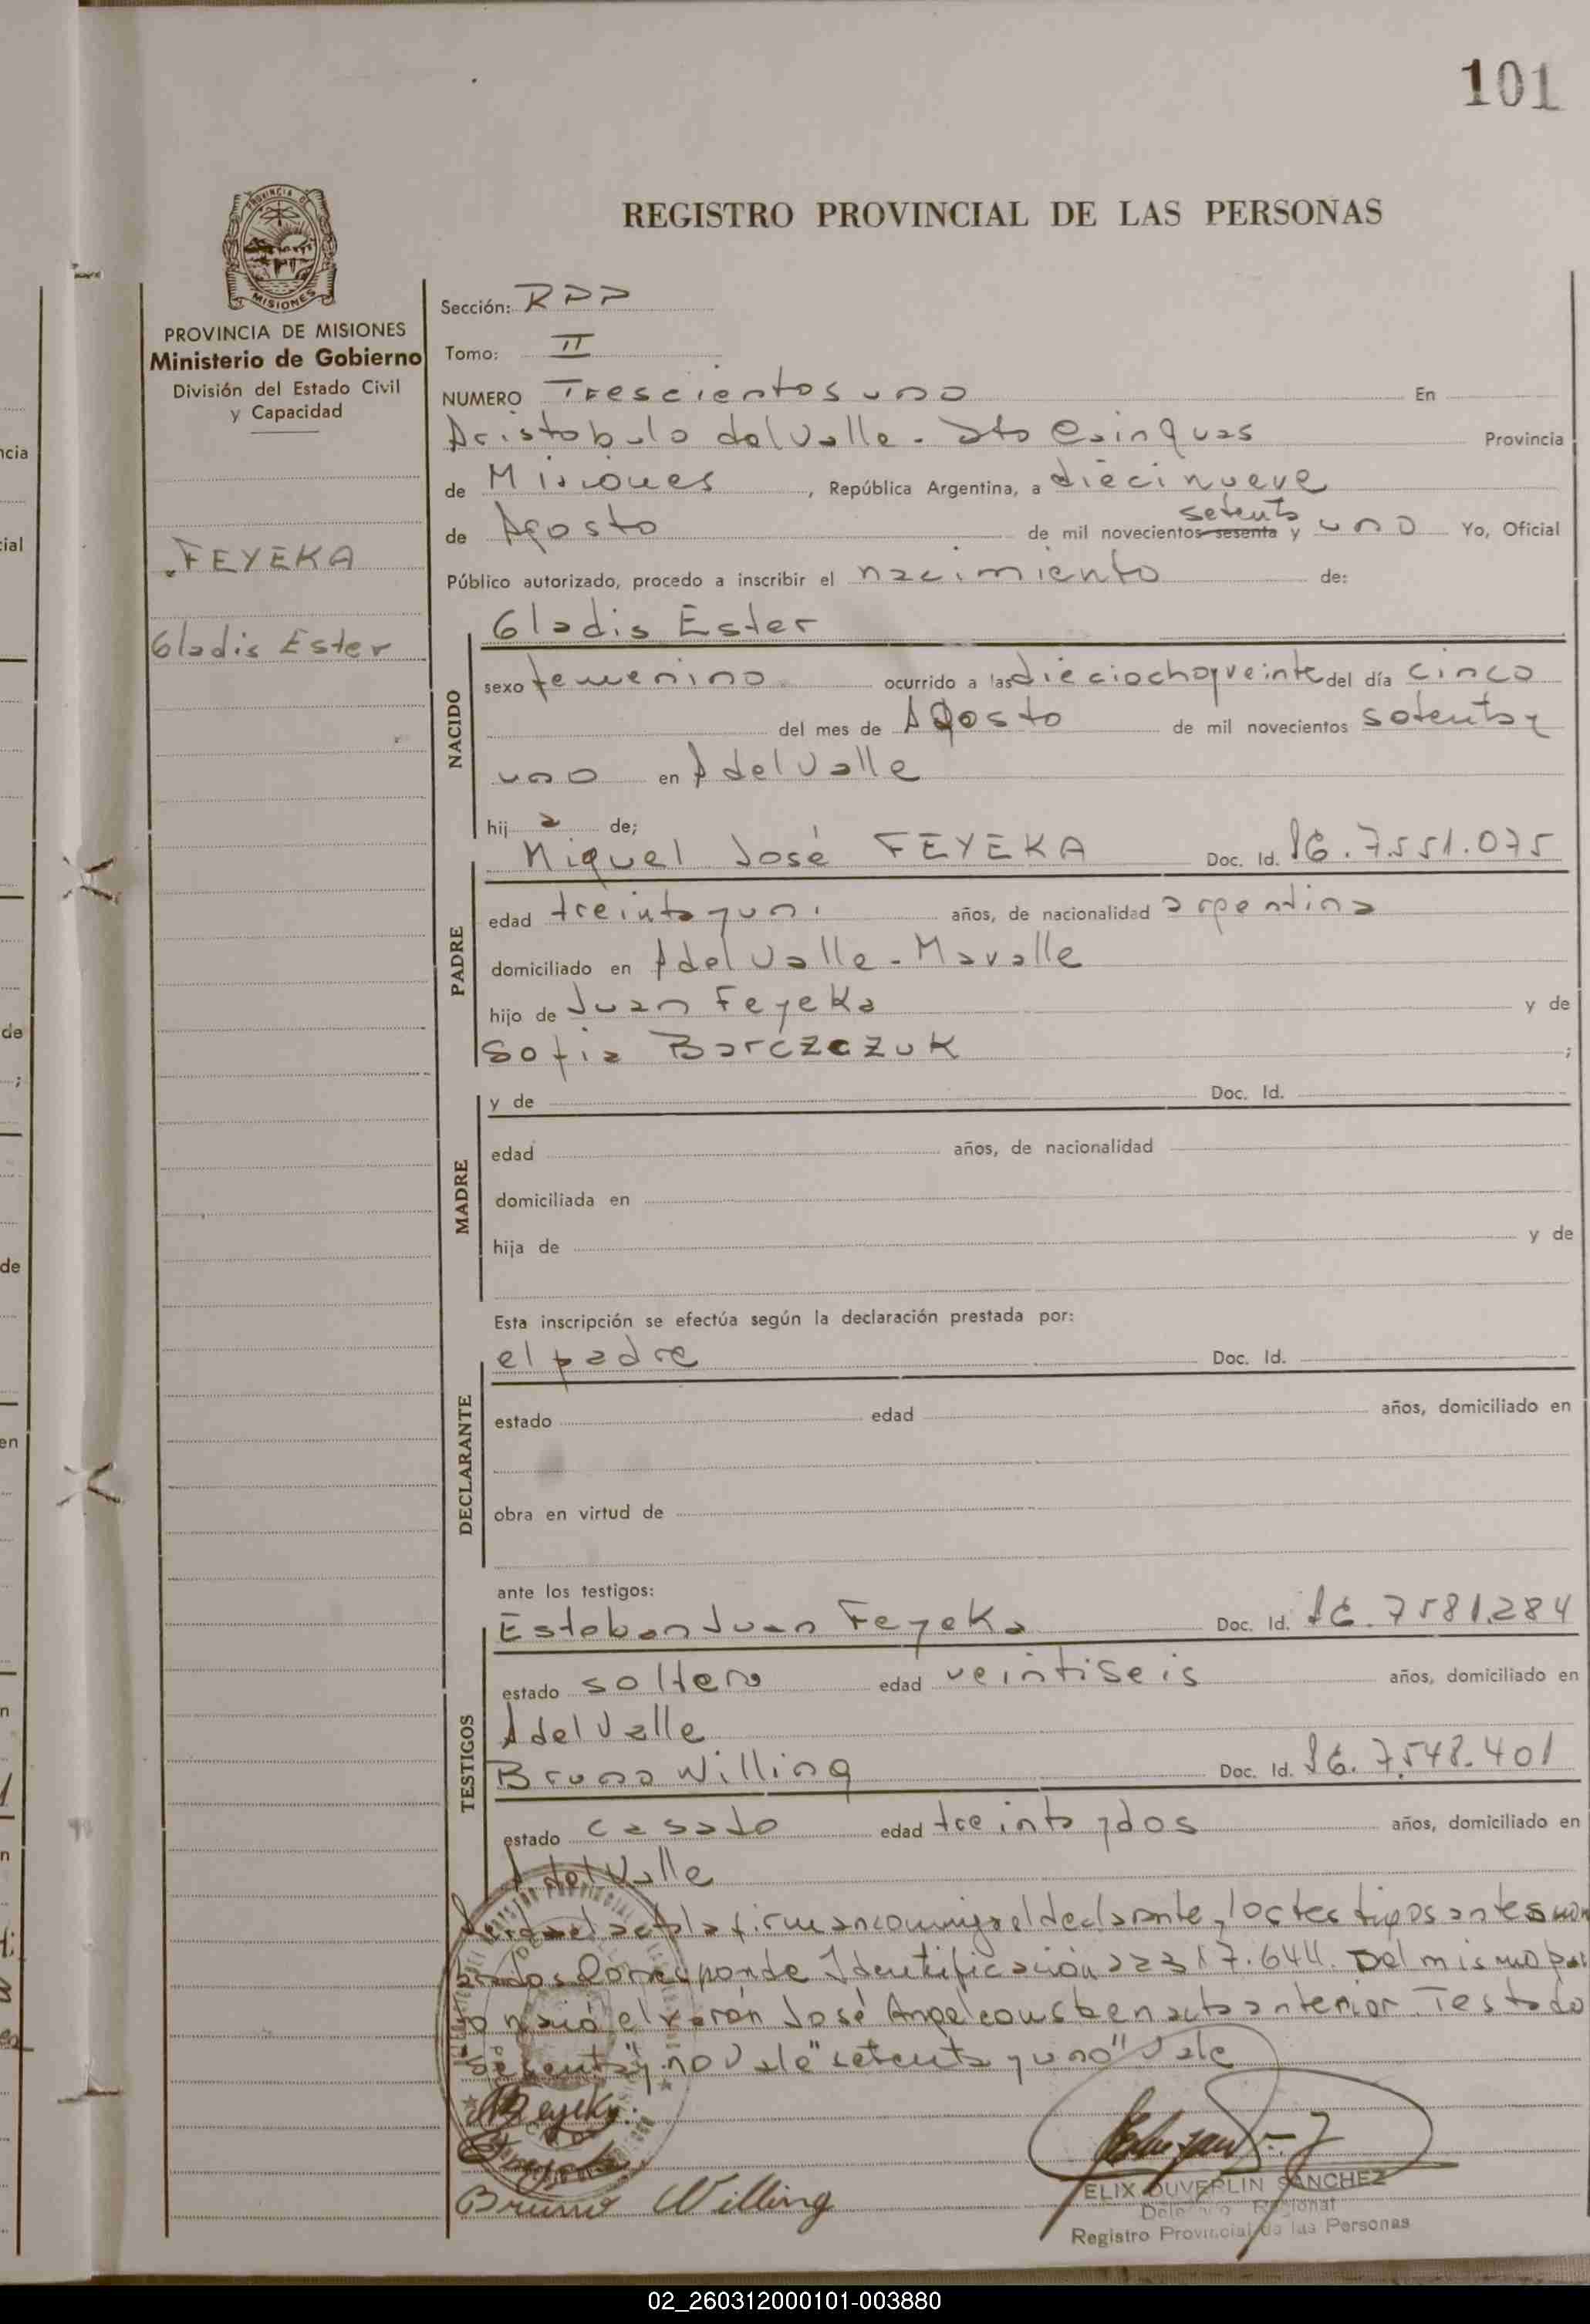 101
REGISTRO PROVINCIAL DE LAS PERSONAS
PROVINCIA DE MISIONES
Ministerio de Gobierno
División del Estado Civil
y Capacidad
FEYEKA
Gladis Ester
Sección: RPP
Tomo: II
NUMERO Trescientos uno En
Aristobulo del Valle - Dto Cainguas Provincia
de Misiones, República Argentina, a diecinueve
setenta
de Agosto de mil novecientos sesenta y uno Yo, Oficial
Público autorizado, procedo a inscribir el nacimiento de:
Gladis Ester
NACIDO
sexo femenino ocurrido a las dieciochoyveinte del día cinco
del mes de Agosto de mil novecientos setenta y
uno en A del Valle
hija de;
Miguel José FEYEKA Doc. Id. 7.551.075
PADRE
edad treinta y un. años, de nacionalidad argentina
domiciliado en A del Valle -
hijo de Juan Feyeka y de
Sofia Barczczuk ;
MADRE
y de Doc. Id.
edad años, de nacionalidad
domiciliada en
hija de y de
Esta inscripción se efectúa según la declaración prestada por:
el padre Doc. Id.
DECLARANTE
estado edad años, domiciliado en
obra en virtud de
ante los testigos:
Esteban Juan Feyeka Doc. Id. 7581.284
TESTIGOS
estado soltero edad veintiseis años, domiciliado en
A del Valle
Bruno Willing Doc. Id. 7.548.401
estado casado edad treinta y dos años, domiciliado en
A del Valle
el acta la firman conmigo el declarante y los testigos antes
Corresponde Identificación 17.644. Del mismo
nació el varón José Angel consta en acta anterior. Testado
"sesenta y" no vale "setenta y uno" Vale
Bruno Willing
ELIX DUVERLIN SANCHEZ
Delegado Regional
Registro Provincial de las Personas
02_260312000101-003880